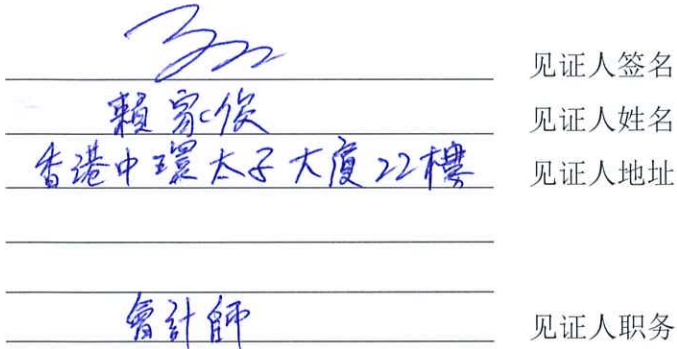 见证人签名
賴家俊 见证人姓名
香港中環太子大厦22樓 见证人地址
會計師 见证人职务